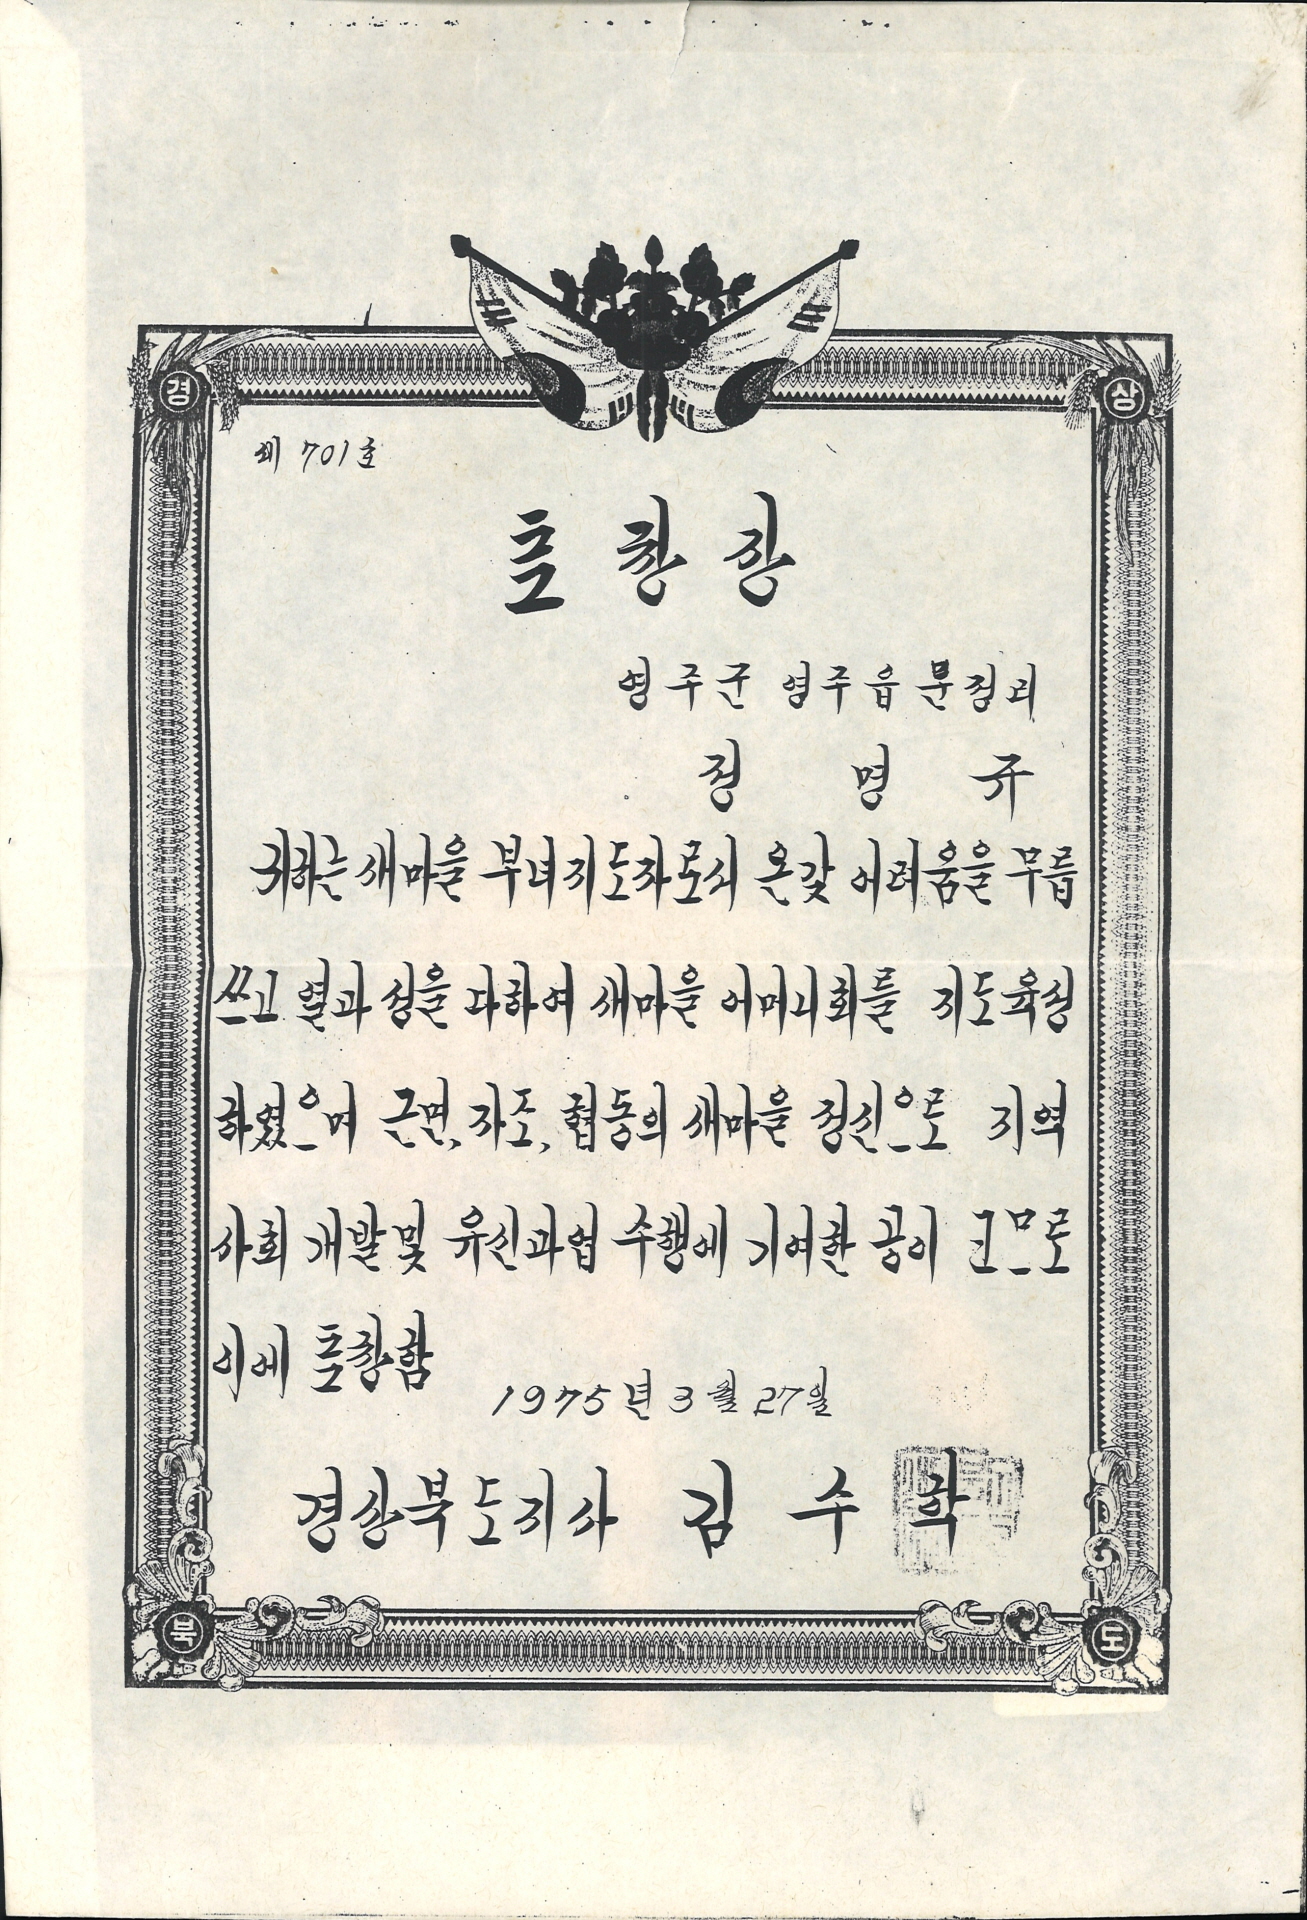 경
상
제 701호
표창장
영주군 영주읍 문정리
정 명 규
귀하는 새마을 부녀지도자로서 온갖 어려움을 무릅
쓰고 열과 성을 다하여 새마을 어머니회를 지도육성
하였으며 근면, 자조, 협동의 새마을 정신으로 지역
사회 개발및 유신과업 수행에 기여한 공이 크므로
이에 표창함
1975년 3월 27일
경상북도지사 김 수 학
북
도